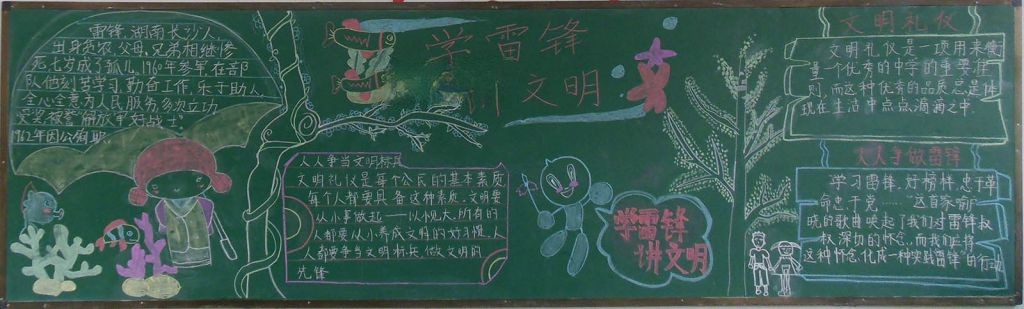 雷锋,湖南长沙人,
出身贫农,父母,兄弟相继惨
死七岁成了孤儿,1960年参军,在部
队他刻苦学习,勤奋工作,乐于助人,
全心全意为人民服务多次立功
受奖被誉"解放军好战士"
1962年因公殉职
学雷锋
文明
人人争当文明标兵
文明礼仪是每个公民的基本素质
每个人都要具备这种素质.文明要
从小事做起——以悦大.所有的
人都要从小养成文明的好习惯,人
人都要争当文明标兵,做文明的
先锋
学雷锋
讲文明
文明礼仪
文明礼仪是一项用来衡
量一个优秀的中学的重要准
则,而这种优秀的品质总是体
现在生活中点点滴滴之中.
人人争做雷锋
学习雷锋,好榜样,忠于革
命忠于党……"这首家喻户
晓的歌曲唤起了我们对雷锋叔
叔,深切的怀念,而我们应将
这种怀念,化成一种实践雷锋的行动